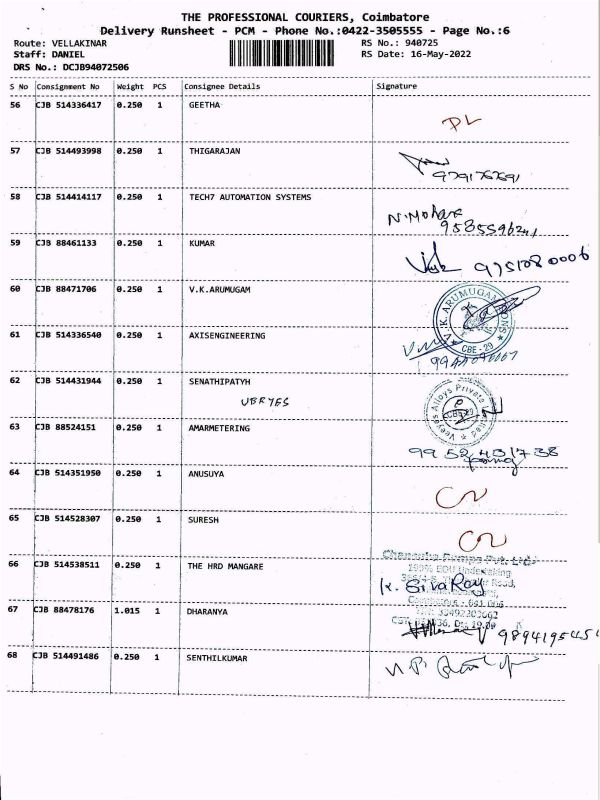 THE PROFESSIONAL COURIERS, Coimbatore
Delivery Runsheet - PCM - Phone No.:0422-3505555 - Page No.:6
Route: VELLAKINAR
RS No.: 940725
Staff: DANIEL
RS Date: 16-May-2022
DRS No.: DCJB94072506
S No Consignment No Weight PCS Consignee Details Signature
56 CJB 514336417 0.250 1 GEETHA
57 CJB 514493998 0.250 1 THIGARAJAN
9791767691
58 CJB 514414117 0.250 1 TECH7 AUTOMATION SYSTEMS
N.Mohana
59 CJB 88461133 0.250 1 KUMAR
9751080006
60 CJB 88471706 0.250 1 V.K.ARUMUGAM
V.K. ARUMUGAM SONS
CBE - 29
61 CJB 514336540 0.250 1 AXISENGINEERING
62 CJB 514431944 0.250 1 SENATHIPATYH
Veeyes Alloys Private Limited
63 CJB 88524151 0.250 1 AMARMETERING
64 CJB 514351950 0.250 1 ANUSUYA
65 CJB 514528307 0.250 1 SURESH
66 CJB 514538511 0.250 1 THE HRD MANGARE
Pumps Pvt. Ltd.
100% EOU Undertaking
Road,
K. SivaRaj
67 CJB 88478176 1.015 1 DHARANYA
9894195454
68 CJB 514491486 0.250 1 SENTHILKUMAR